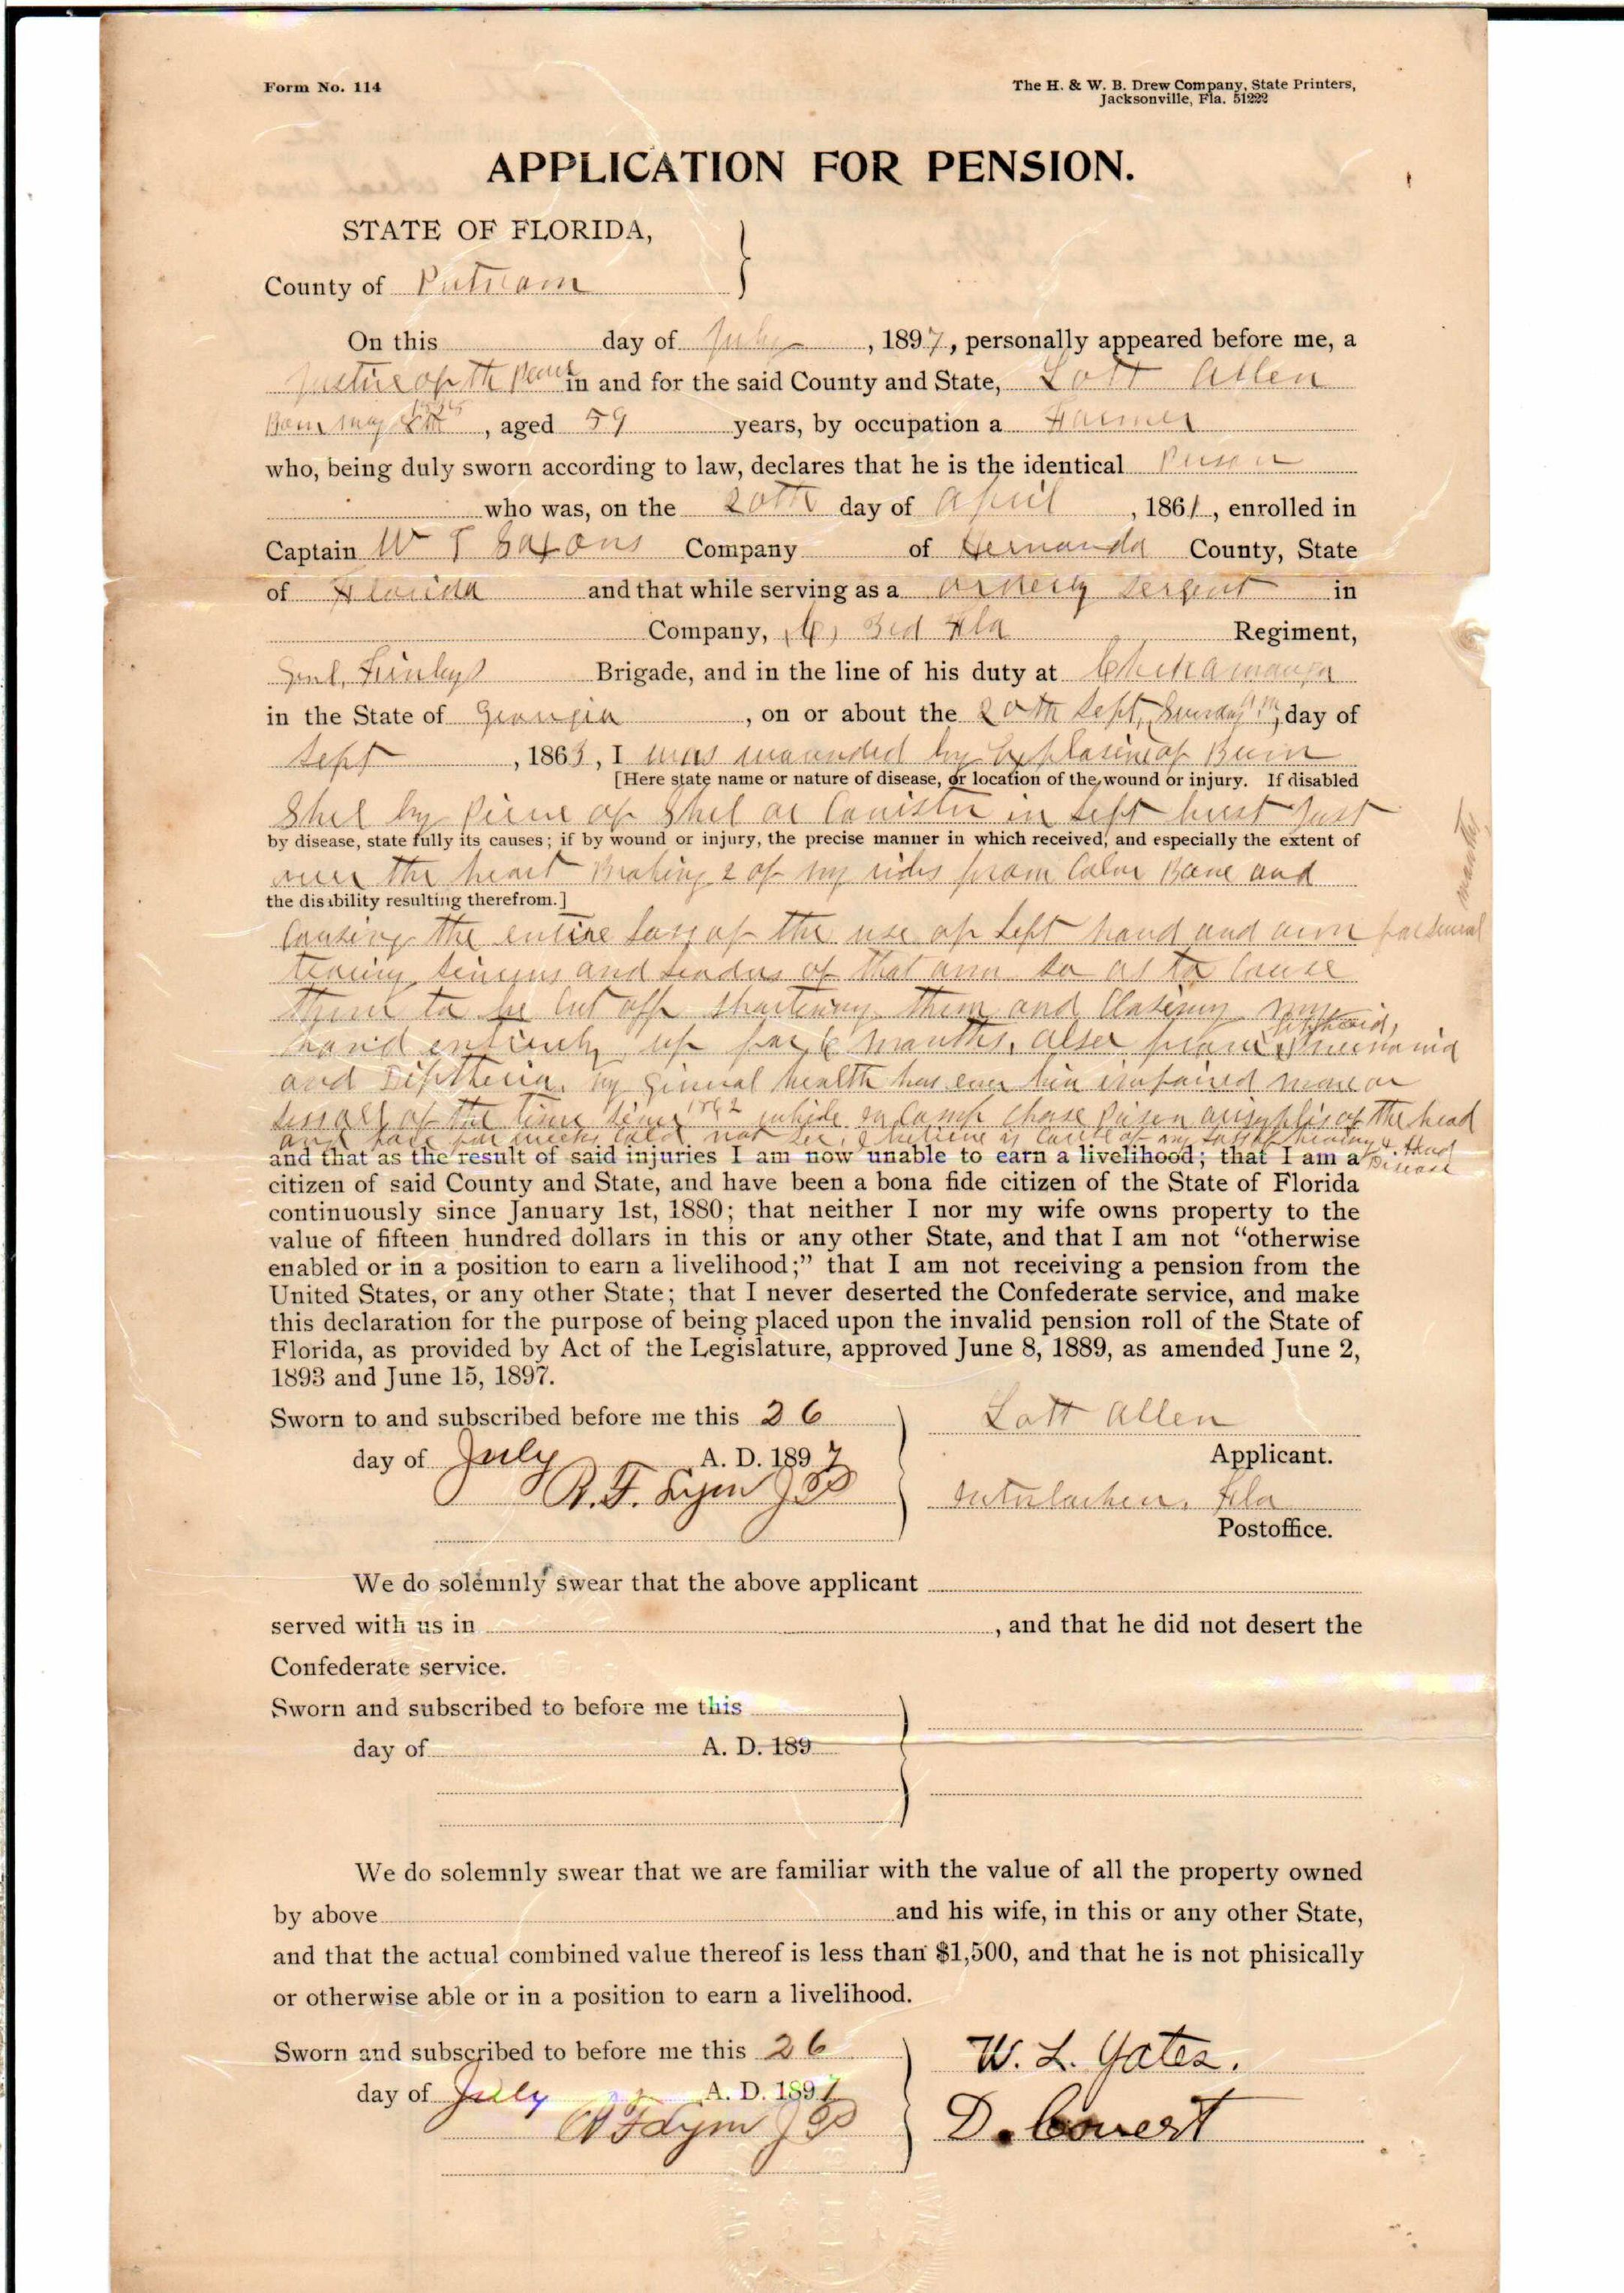 Form No. 114
The H. & W. B. Drew Company, State Printers,
Jacksonville, Fla. 51222
APPLICATION FOR PENSION.
STATE OF FLORIDA,
County of Putnam
On this day of July, 1897, personally appeared before me, a
Justice of th Peace in and for the said County and State, Lott Allen
Born May 8th, aged 59 years, by occupation a Farmer
who, being duly sworn according to law, declares that he is the identical Person
who was, on the 20th day of April, 1861, enrolled in
Captain W T Saxons Company of Hernando County, State
of Florida and that while serving as a orderly Sergent in
Company, C, 3rd Fla Regiment,
Genl, Finleys Brigade, and in the line of his duty at Chickamauga
in the State of Georgia, on or about the 20th Sept, Sunday day of
Sept, 1863, I was wounded by Explosine of Bum
[Here state name or nature of disease, or location of the wound or injury. If disabled
Shel by Piece of Shel or Canister in left brest Just
by disease, state fully its causes; if by wound or injury, the precise manner in which received, and especially the extent of
over the heart Braking 2 of my ribs from Color Bone and
the disability resulting therefrom.]
Causing the entire Loss of the use of Left hand and arm for several
months
tearing and of that arm so as to Cause
them to be Cut off shortening them and Closing my
hand entirely up for 6 months, also from
and Diptheria. my general health has ever bin impaired more or
less all of the time since 1862 while in Camp Chase Prison of the head
and face for weeks Cold not See, I believe is Cause of my Loss of hearing & Head
Disease
and that as the result of said injuries I am now unable to earn a livelihood; that I am a
citizen of said County and State, and have been a bona fide citizen of the State of Florida
continuously since January 1st, 1880; that neither I nor my wife owns property to the
value of fifteen hundred dollars in this or any other State, and that I am not "otherwise
enabled or in a position to earn a livelihood;" that I am not receiving a pension from the
United States, or any other State; that I never deserted the Confederate service, and make
this declaration for the purpose of being placed upon the invalid pension roll of the State of
Florida, as provided by Act of the Legislature, approved June 8, 1889, as amended June 2,
1893 and June 15, 1897.
Sworn to and subscribed before me this 26
Lott Allen
day of July A. D. 1897
Applicant.
R. F. Lyon J P
Interlachen, Fla
Postoffice.
We do solemnly swear that the above applicant
served with us in , and that he did not desert the
Confederate service.
Sworn and subscribed to before me this
day of A. D. 189
We do solemnly swear that we are familiar with the value of all the property owned
by above and his wife, in this or any other State,
and that the actual combined value thereof is less than $1,500, and that he is not phisically
or otherwise able or in a position to earn a livelihood.
Sworn and subscribed to before me this 26
W. L. Yates.
day of July A. D. 1897
R F Lyon J P
D. Covert